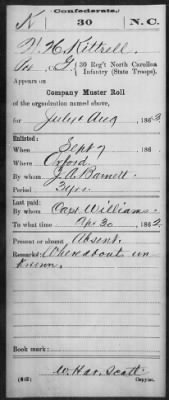 Confederate.
K 30 N.C.
W. H. Kittrell
Co. G, 30 Reg't North Carolina
Infantry (State Troops).
Appears on
Company Muster Roll
of the organization named above,
for July & Aug, 1862
Enlisted:
When Sept 7, 186
Where Oxford
By whom J. A. Barnett
Period 3 yrs.
Last paid:
By whom Capt Williams
To what time Apr 30, 1862.
Present or absent Absent.
Remarks: Whereabout un
known.
Book mark:
(642) W. Har. Scott
Copyist.